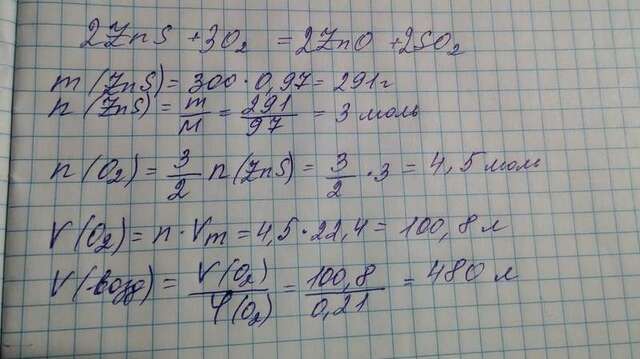 2ZnS + 3O₂ = 2ZnO + 2SO₂
m(ZnS) = 300 · 0,97 = 291 г
n(ZnS) = m/M = 291/97 = 3 моль
n(O₂) = 3/2 n(ZnS) = 3/2 · 3 = 4,5 моль
V(O₂) = n · Vm = 4,5 · 22,4 = 100,8 л
V(возд) = V(O₂)/φ(O₂) = 100,8/0,21 = 480 л